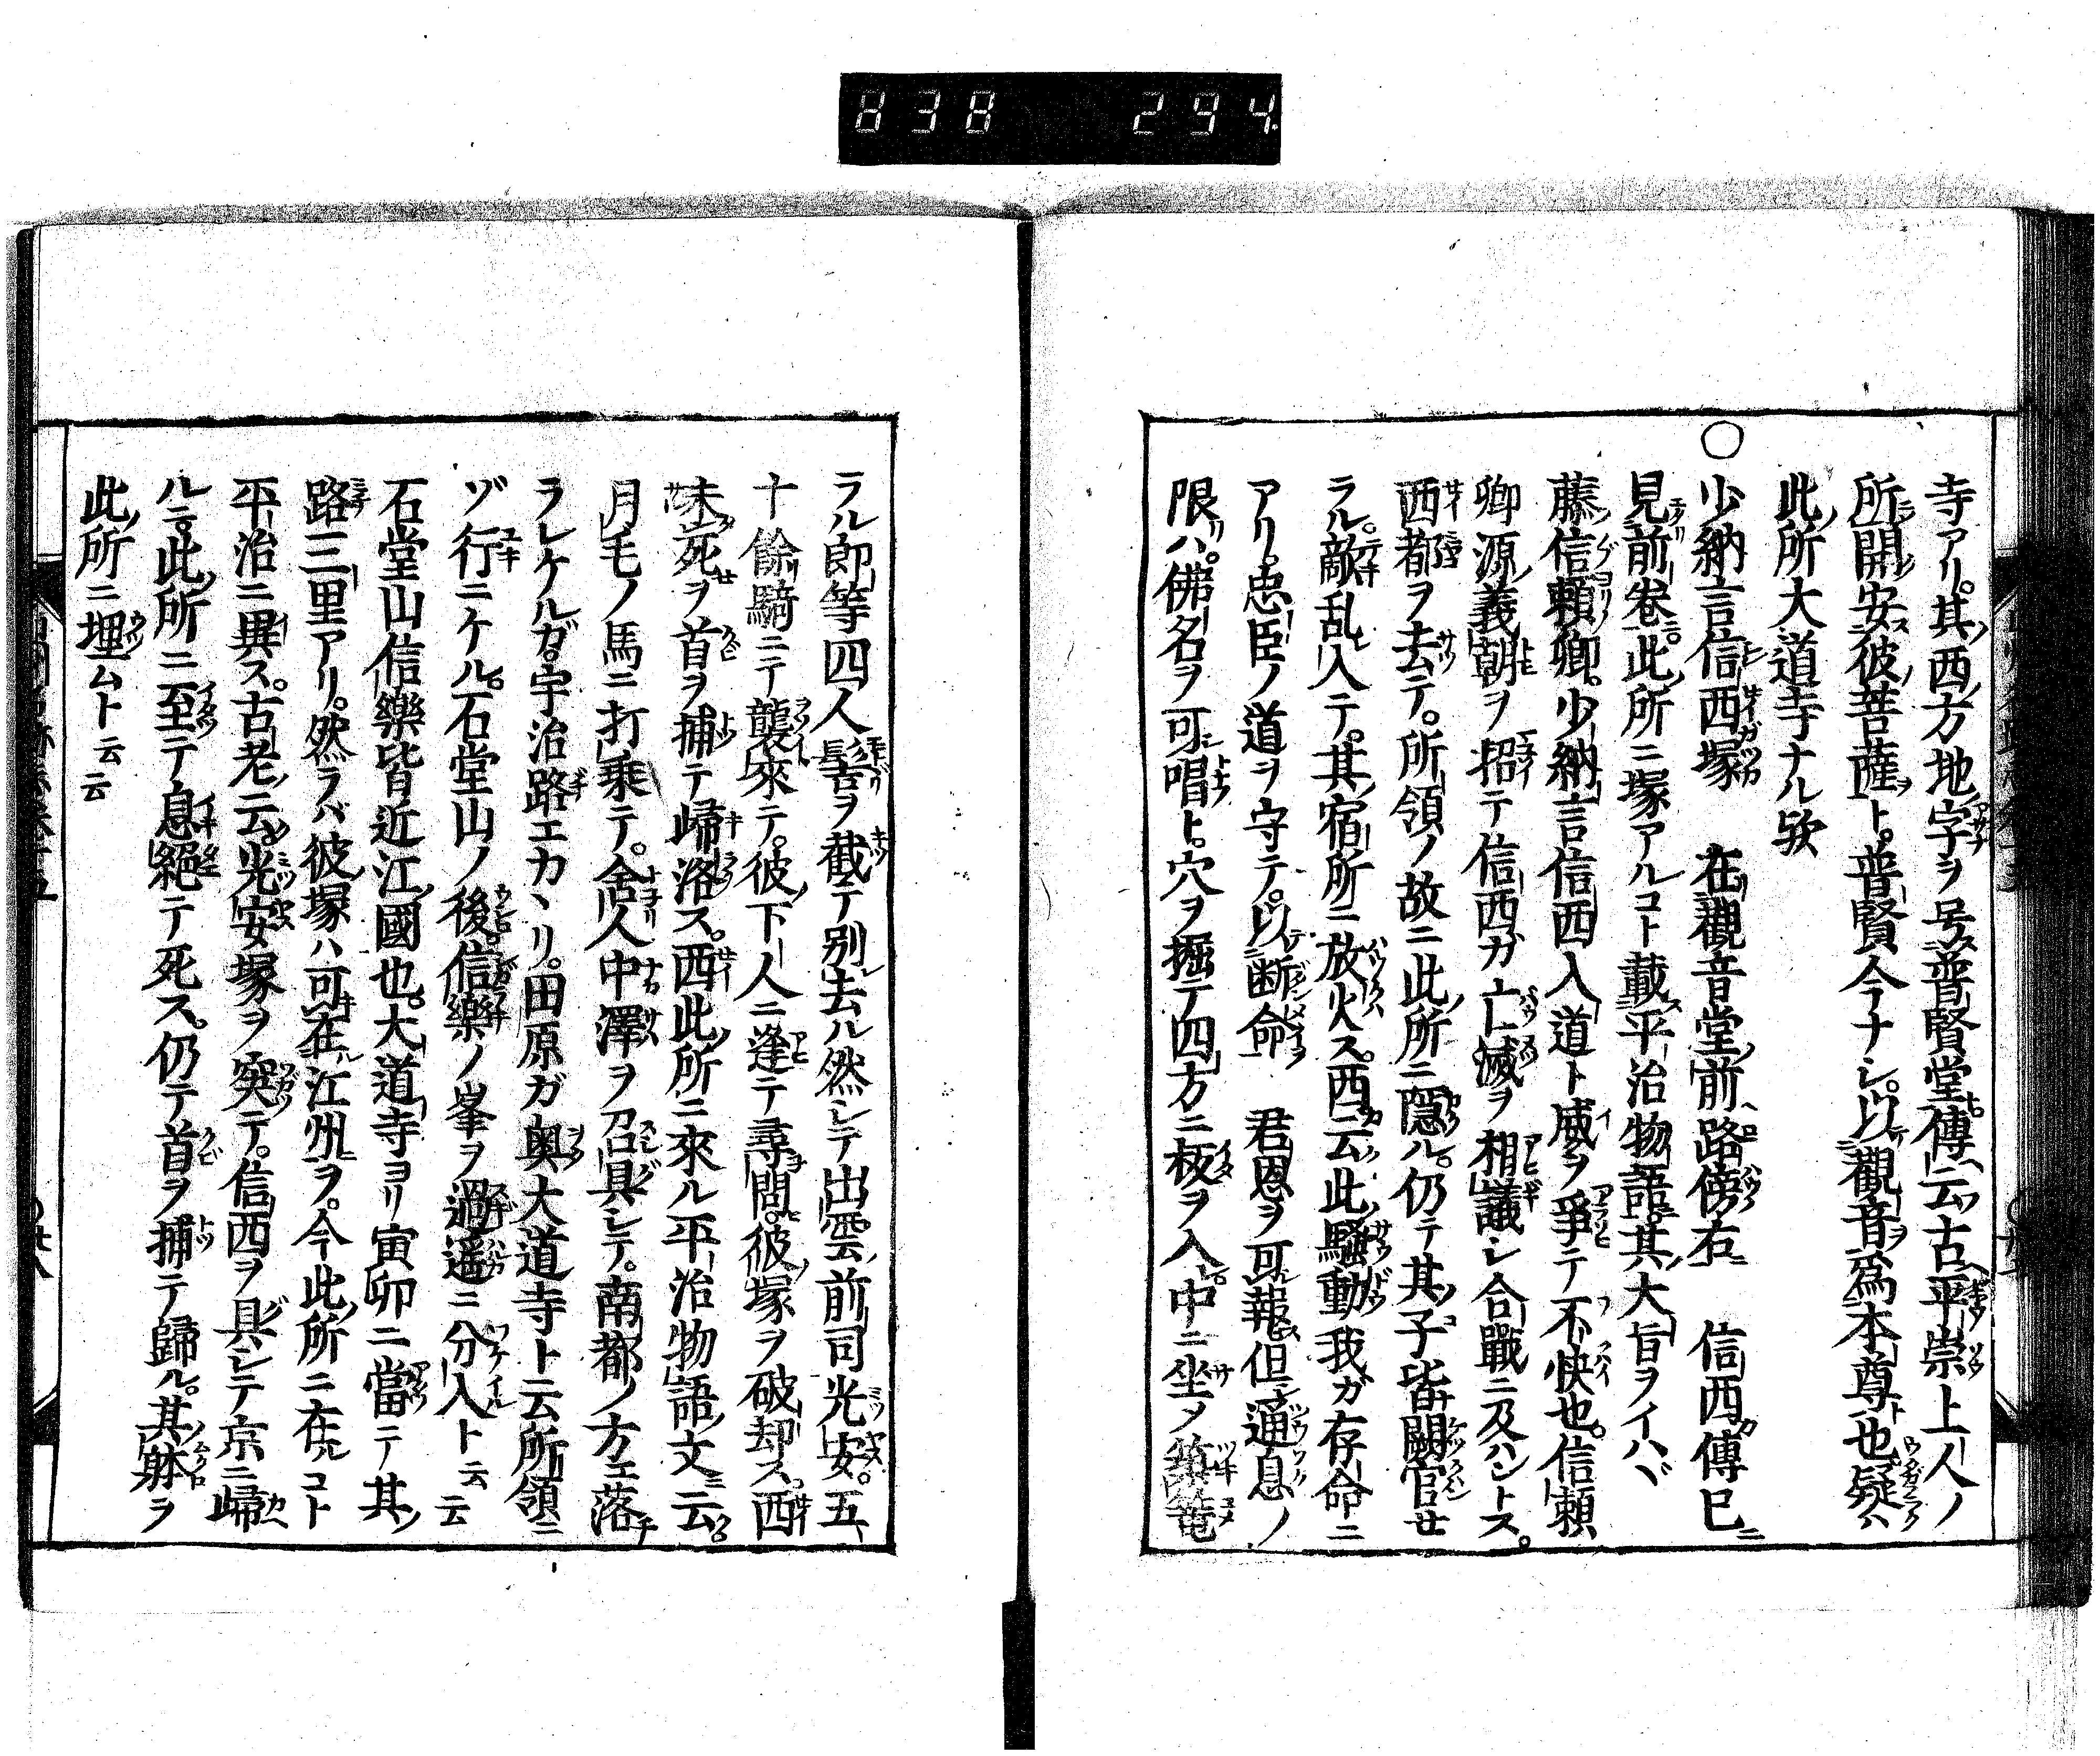 838 294
寺アリ。其西方地字ヲ号普賢堂傳云古平崇上人ノ
所開安彼菩薩ト。普賢今ナシ。以觀音為本尊也疑ハ
此所大道寺ナル欤
○少納言信西塚 在觀音堂前路傍右 信西傳巳ニ
見前巻此所ニ塚アルコト載平治物語其大旨ヲイハヾ
藤信頼卿。少納言信西入道ト威ヲ爭テ不快也。信頼
卿源義朝ヲ招テ信西ガ亡滅ヲ相議シ合戰ニ及ハントス。
西都ヲ去テ。所領ノ故ニ此所ニ隠ル。仍テ其子皆闕官せ
ラル。敵乱入テ。其宿所ニ放火ス。西云此騒動我ガ存命ニ
アリ。忠臣ノ道ヲ守テ。以断命 君恩ヲ可報但通息ノ
限ハ。佛名ヲ可唱ト。穴ヲ掘テ四方ニ板ヲ入。中ニ坐メ築篭
ラル郎等四人髻ヲ截テ別去ル然シテ出雲前司光安。五
十餘騎ニテ襲來テ。彼下人ニ逢テ尋問。彼塚ヲ破却ス。西
未死ヲ首ヲ捕テ歸洛ス。西此所ニ來ル平治物語文ニ云。
月毛ノ馬ニ打乗テ。舎人中澤ヲ召具シテ。南都ノ方エ落
ラレケルガ。宇治路エカヽリ。田原ガ奥大道寺ト云所領ニ
ゾ行ニケル。石堂山ノ後信樂ノ峯ヲ過遥ニ分入ト云云
石堂山信樂皆近江國也。大道寺ヨリ寅卯ニ當テ其
路三里アリ。然ラバ彼塚ハ可在江州ヲ。今此所ニ在コト
平治ニ異ス。古老云。光安塚ヲ突テ。信西ヲ具シテ京ニ歸
ルニ。此所ニ至テ息絶テ死ス。仍テ首ヲ捕テ歸ル。其躰ヲ
此所ニ埋ムト云云